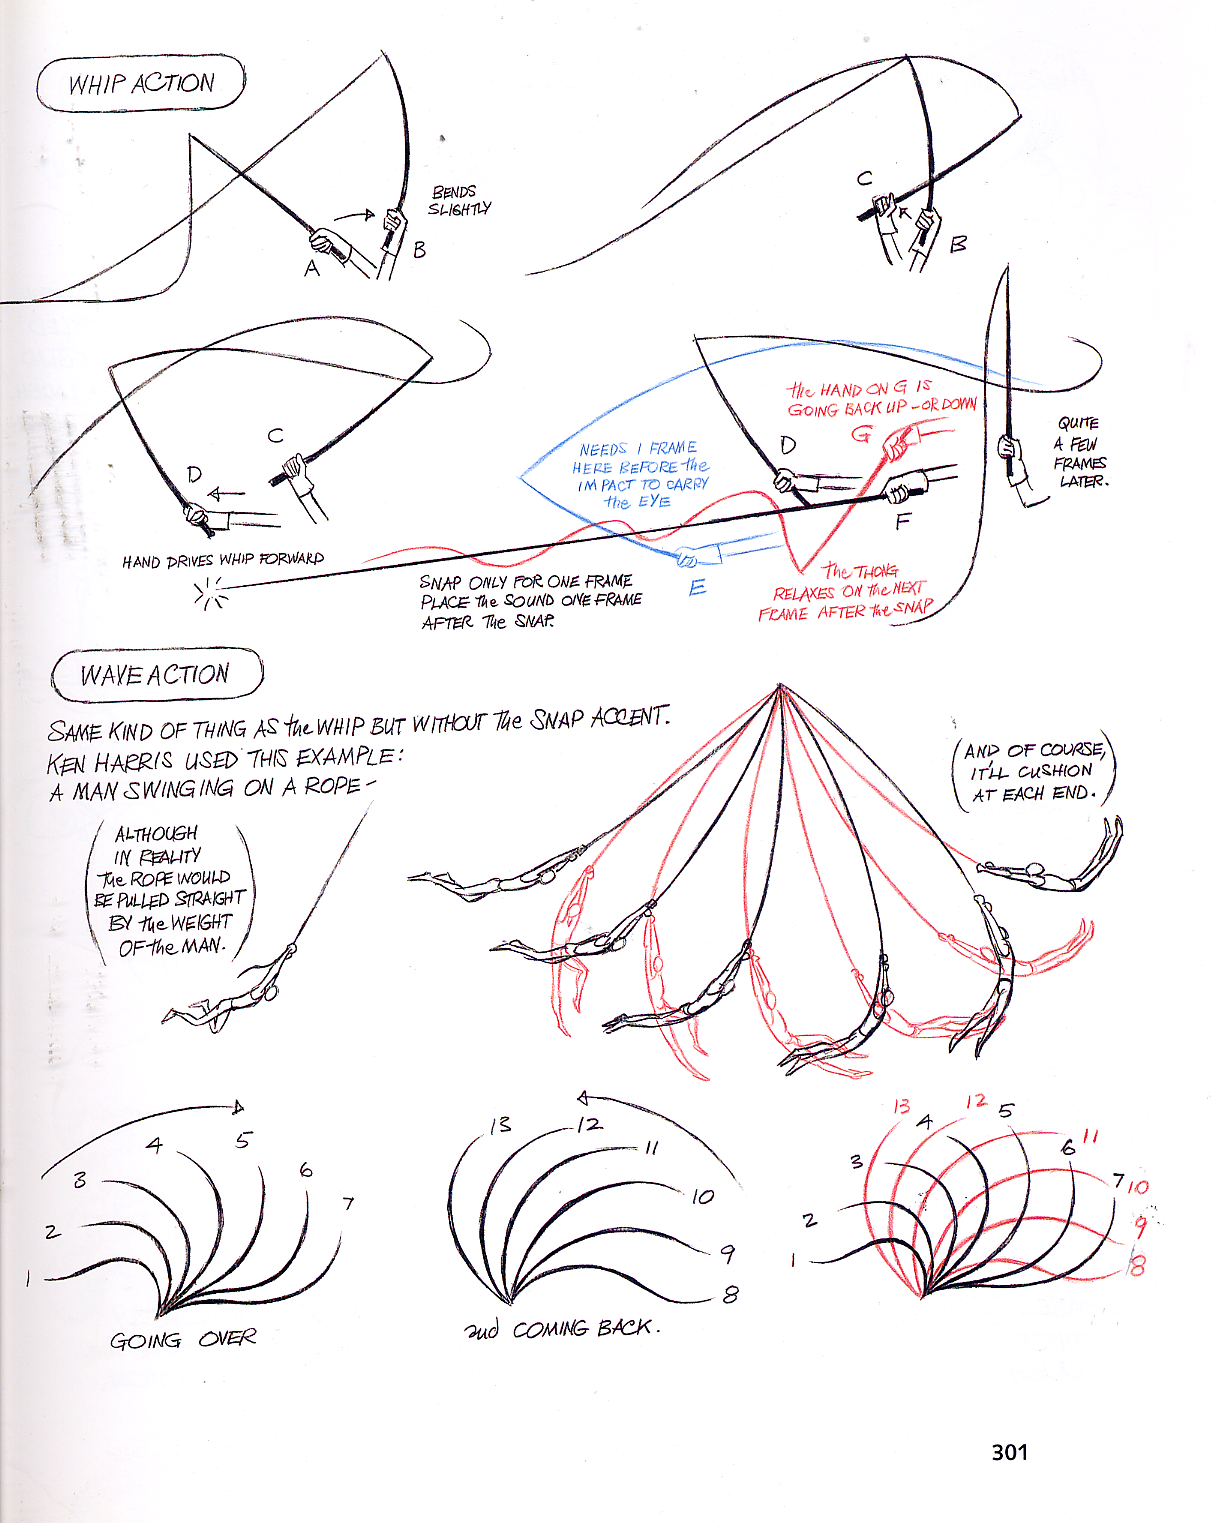 WHIP ACTION
BENDS
SLIGHTLY
A
B
C
B
C
D
HAND DRIVES WHIP FORWARD
NEEDS 1 FRAME
HERE BEFORE the
IMPACT TO CARRY
the EYE
D
the HAND ON G IS
GOING BACK UP - OR DOWN
G
F
E
QUITE
A FEW
FRAMES
LATER.
SNAP ONLY FOR ONE FRAME
PLACE the SOUND ONE FRAME
AFTER the SNAP.
the THONG
RELAXES ON the NEXT
FRAME AFTER the SNAP
WAVE ACTION
SAME KIND OF THING AS the WHIP BUT WITHOUT the SNAP ACCENT.
KEN HARRIS USED THIS EXAMPLE:
A MAN SWINGING ON A ROPE -
(ALTHOUGH
IN REALITY
the ROPE WOULD
BE PULLED STRAIGHT
BY the WEIGHT
OF the MAN.)
(AND OF COURSE,
IT'LL CUSHION
AT EACH END.)
1
2
3
4
5
6
7
GOING OVER
13
12
11
10
9
8
and COMING BACK.
1
2
3
13
4
12
5
6
11
7
10
9
8
301